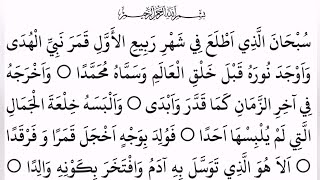 بِسْمِ اللّٰهِ الرَّحْمٰنِ الرَّحِيْمِ
سُبْحَانَ الَّذِي اَطْلَعَ فِي شَهْرِ رَبِيعِ الْاَوَّلِ قَمَرَ نَبِيِّ الْهُدَى
وَاَوْجَدَ نُورَهُ قَبْلَ خَلْقِ الْعَالَمِ وَسَمَّاهُ مُحَمَّدًا ○ وَاَخْرَجَهُ
فِي آخِرِ الزَّمَانِ كَمَا قَدَّرَ وَاَبْدَى ○ وَاَلْبَسَهُ خِلْعَةَ الْجَمَالِ
الَّتِي لَمْ يُلْبِسْهَا اَحَدًا ○ فَوُلِدَ بِوَجْهٍ اَخْجَلَ قَمَرًا وَ فَرْقَدًا
○ اَلَا هُوَ الَّذِي تَوَسَّلَ بِهِ آدَمُ وَافْتَخَرَ بِكَوْنِهِ وَالِدًا ○